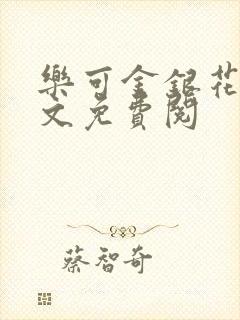 樂可金銀花
文免費閱
蔡智奇